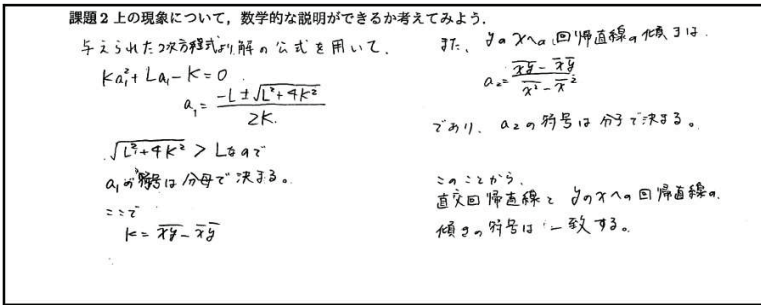 課題2 上の現象について，数学的な説明ができるか考えてみよう．
与えられた2次方程式より解の公式を用いて．
Ka₁² + La₁ - K = 0
a₁ = (-L ± √(L² + 4K²)) / 2K
√(L² + 4K²) > L なので
a₁の符号は分母で決まる。
ここで
K = x̄ȳ - x̄ ȳ
また、yのxへの回帰直線の傾きは．
a₂ = (x̄ȳ - x̄ ȳ) / (x̄² - x̄²)
であり、a₂の符号は分子で決まる。
このことから．
直交回帰直線とyのxへの回帰直線の．
傾きの符号は一致する。